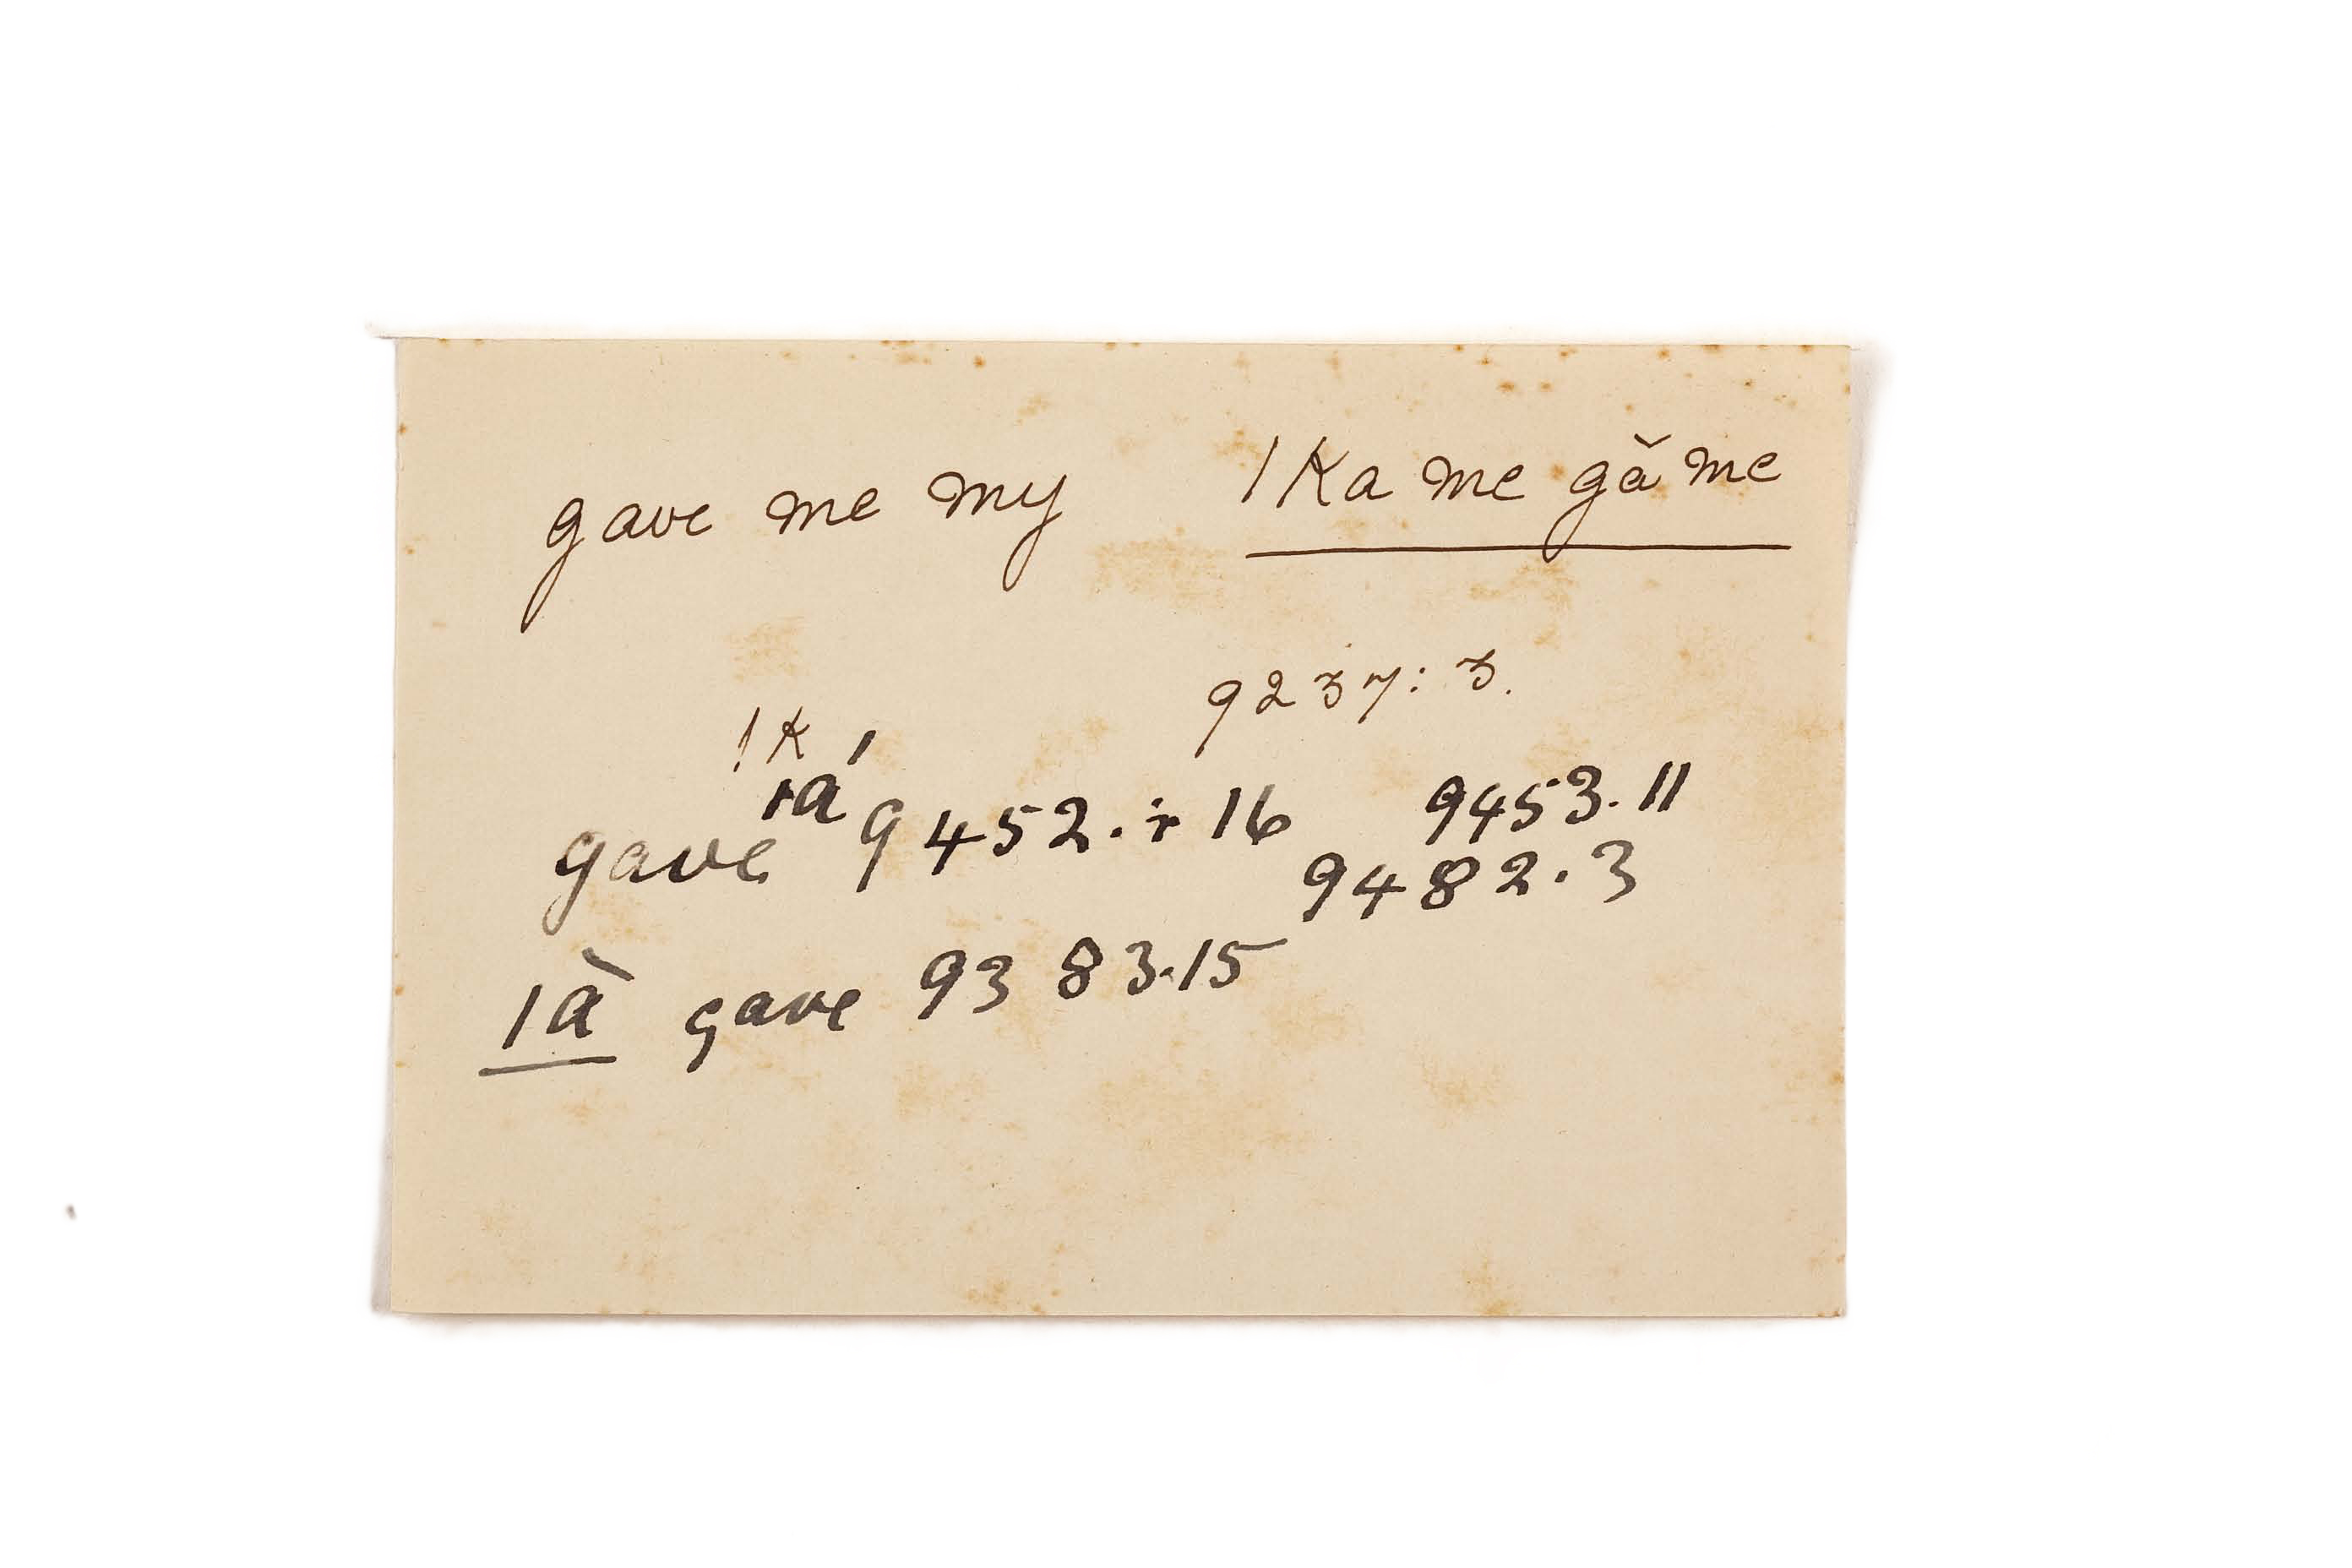 gave me my /Ka me gă me
9237: 3.
!k
ıa ' 
gave 9452. ÷ 16 9453. 11
9482. 3
/à gave 9383.15